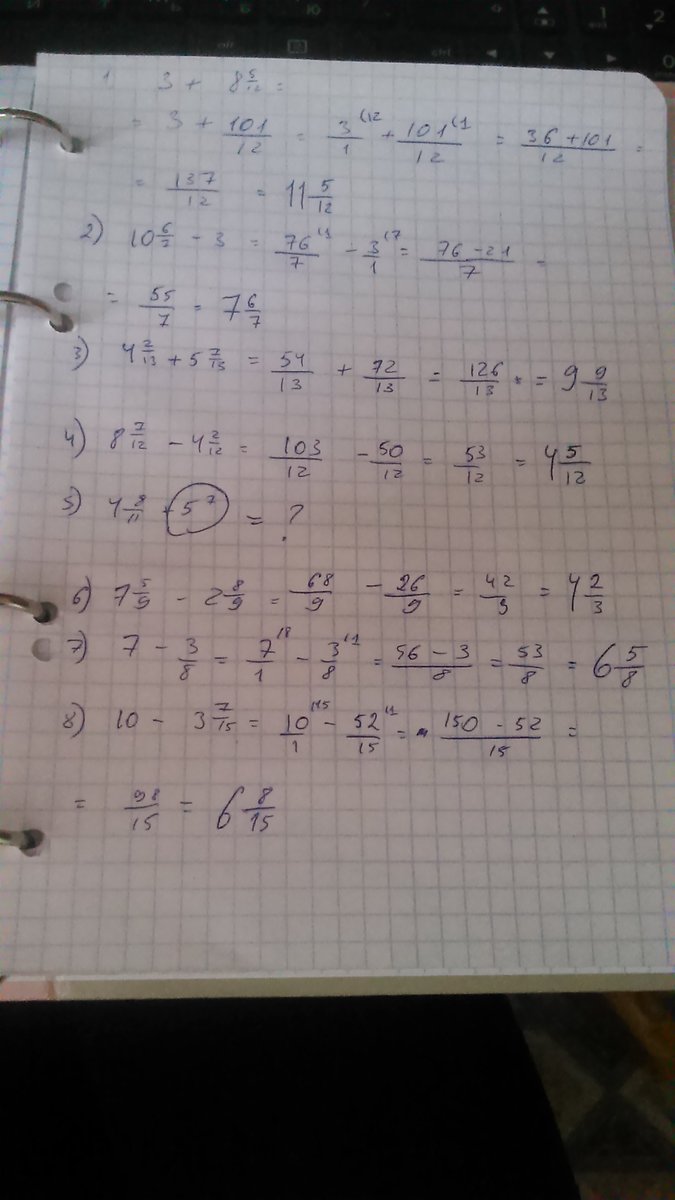 1 3 + 8 5/12 =
= 3 + 101/12 = 3/1 (12 + 101/12 (1 = 36 + 101/12 =
= 137/12 = 11 5/12
2) 10 6/7 - 3 = 76/7 (1 - 3/1 (7 = 76 - 21/7 =
= 55/7 = 7 6/7
3) 4 2/13 + 5 7/13 = 54/13 + 72/13 = 126/13 = 9 9/13
4) 8 7/12 - 4 2/12 = 103/12 - 50/12 = 53/12 = 4 5/12
5) 4 8/11 + 5 7 = ?
6) 7 5/9 - 2 8/9 = 68/9 - 26/9 = 42/9 = 4 2/3
7) 7 - 3/8 = 7/1 (8 - 3/8 (1 = 56 - 3/8 = 53/8 = 6 5/8
8) 10 - 3 7/15 = 10/1 (15 - 52/15 (1 = 150 - 52/15 =
= 98/15 = 6 8/15